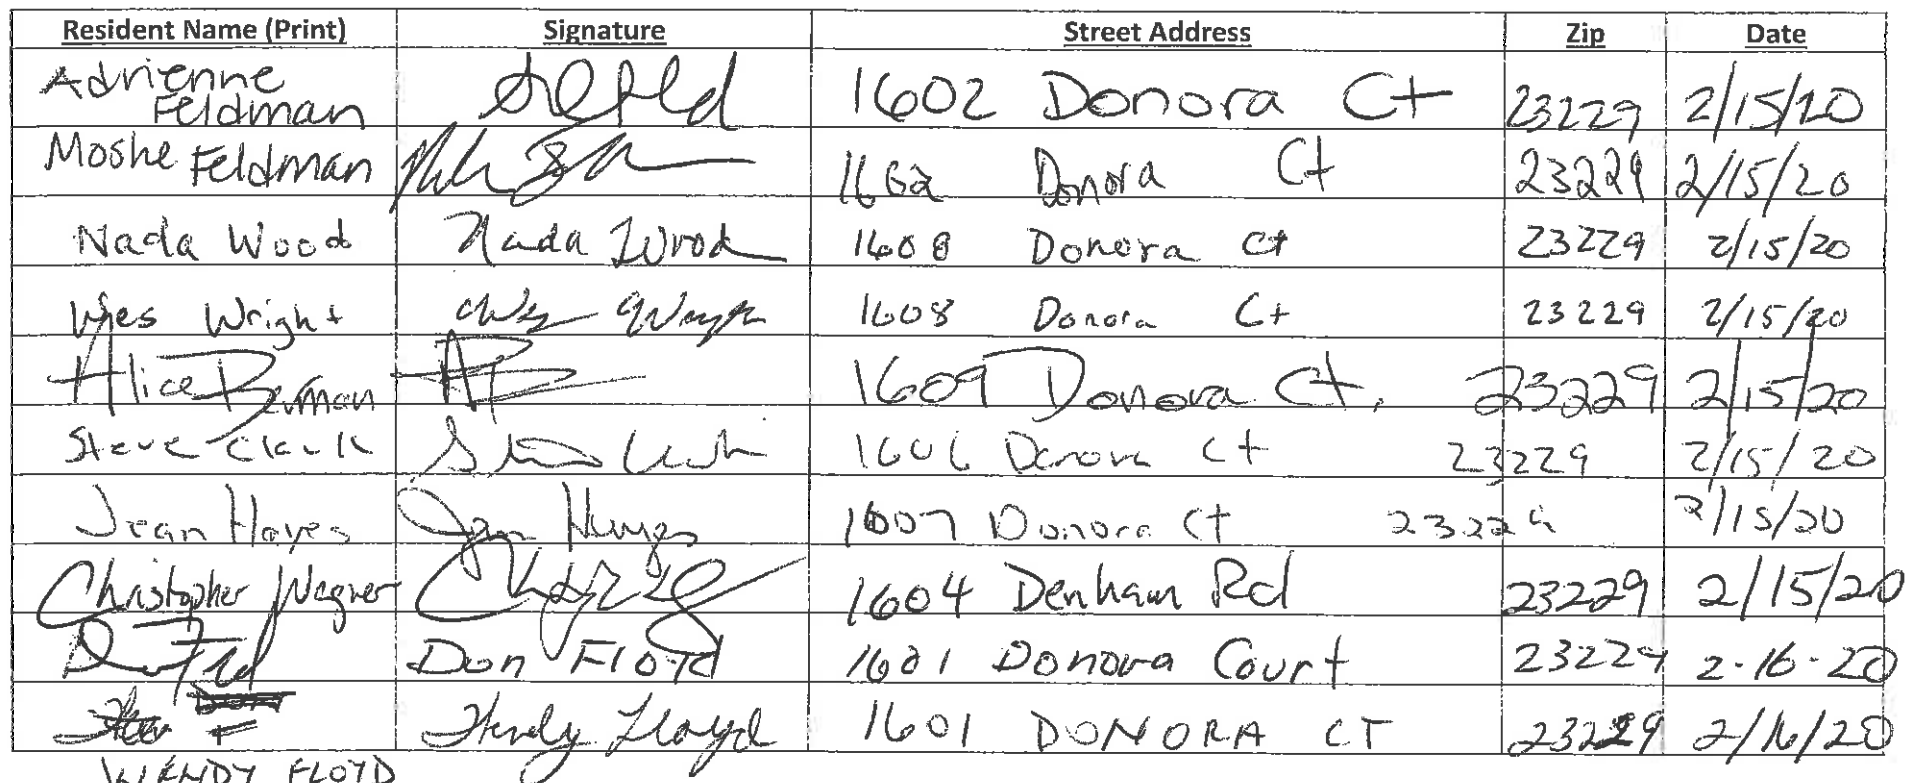 Resident Name (Print) Signature Street Address Zip Date
Adrienne Feldman 1602 Donora Ct 23229 2/15/20
Moshe Feldman 1602 Donora Ct 23229 2/15/20
Nada Wood Nada Wood 1608 Donora Ct 23229 2/15/20
Wes Wright Wes Wright 1608 Donora Ct 23229 2/15/20
Alice Berman AB 1609 Donora Ct. 23229 2/15/20
Steve Clark 1606 Donora Ct 23229 2/15/20
Jean Hayes Jean Hayes 1607 Donora Ct 23229 2/15/20
Christopher Wagner 1604 Denham Rd 23229 2/15/20
Don Floyd 1601 Donora Court 23229 2-16-20
Wendy Floyd 1601 DONORA CT 23229 2/16/20
WENDY FLOYD